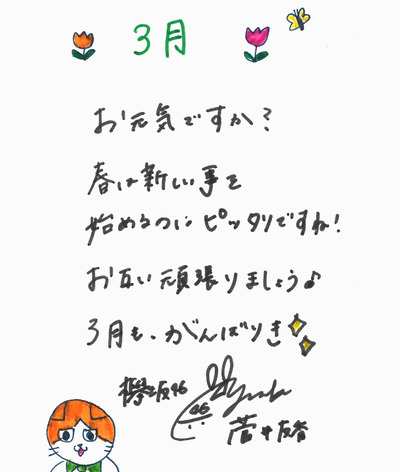 3月
お元気ですか?
春は新しい事を
始めるのに ピッタリですね!
お互い頑張りましょう♪
3月も、がんばりき
欅坂46
46 Yuuka
菅井友香